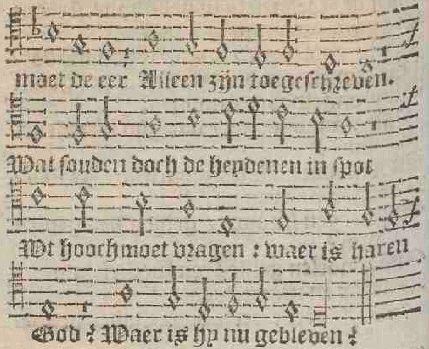 moet de eer Alleen zijn toegeschreven.
Wat souden doch de heydenen in spot
Wt hoochmoet vragen : waer is haren
God ? Waer is hy nu gebleven ?